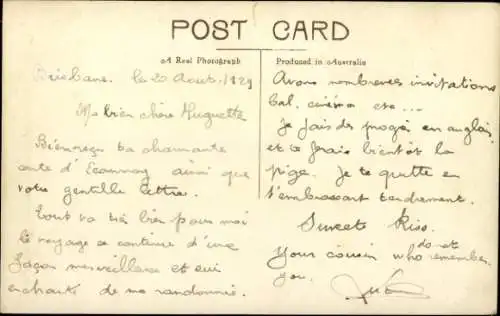 POST CARD
A Real Photograph
Produced in Australia
Brisbane. le 20 Aout. 1929
Ma bien chère Huguette
Bien reçu ta charmante
carte d' ainsi que
votre gentille lettre.
Tout va très bien pour moi
le voyage se continue d'une
façon merveilleuse et suis
enchanté de ma randonnée.
Avons nombreuses invitations
bal. cinéma etc...
Je fais des progrès en anglais
et te ferais bientôt la
pige. Je te quitte en
t'embrassant tendrement.
Sweets Kiss.
Your cousin who do not remember
you.